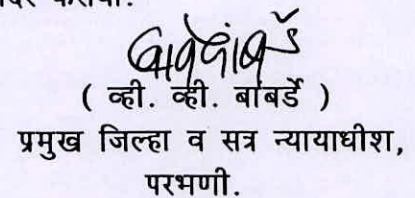 ( व्ही. व्ही. बांबर्डे )
प्रमुख जिल्हा व सत्र न्यायाधीश,
परभणी.